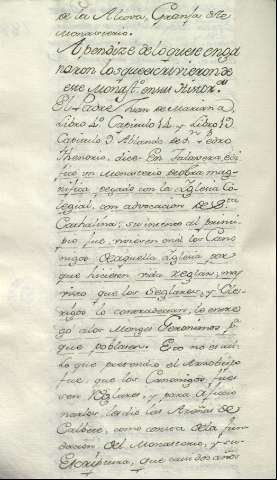 de la Alcova, Granja de
Monasterio.
Apendize de lo que se enga
ñaron los que escrivieron de
este Monast.º en sus Histor.as
El Padre Juan de Mariana
Libro 4º Capitulo 14 y Libro 19
Capitulo 9 Ablando de D.n Pedro
Thenorio, dice: En Talavera edi
ficó un Monasterio de obra mag
nifica, pegado con la Iglesia Co
legial, con advocacion de S.ta
Cathalina; su intento al princi
pio fue, viviesen en el los Cano
nigos de aquella Iglesia por
que hiciesen vida reglar; mas
visto que los seglares, y Cle
rigos lo contradecian, lo entre
gó a los Monges Geronimos p.ª
que poblasen. Eso no es asi
lo que pretendió el Arzobispo
fue, que los Canonigos fues
sen Reglares, y para aficio
narlos les dio las Aceñas de
Calbete, como consta de la fun
dacion del Monasterio, y su
Escriptura, que casi dos años